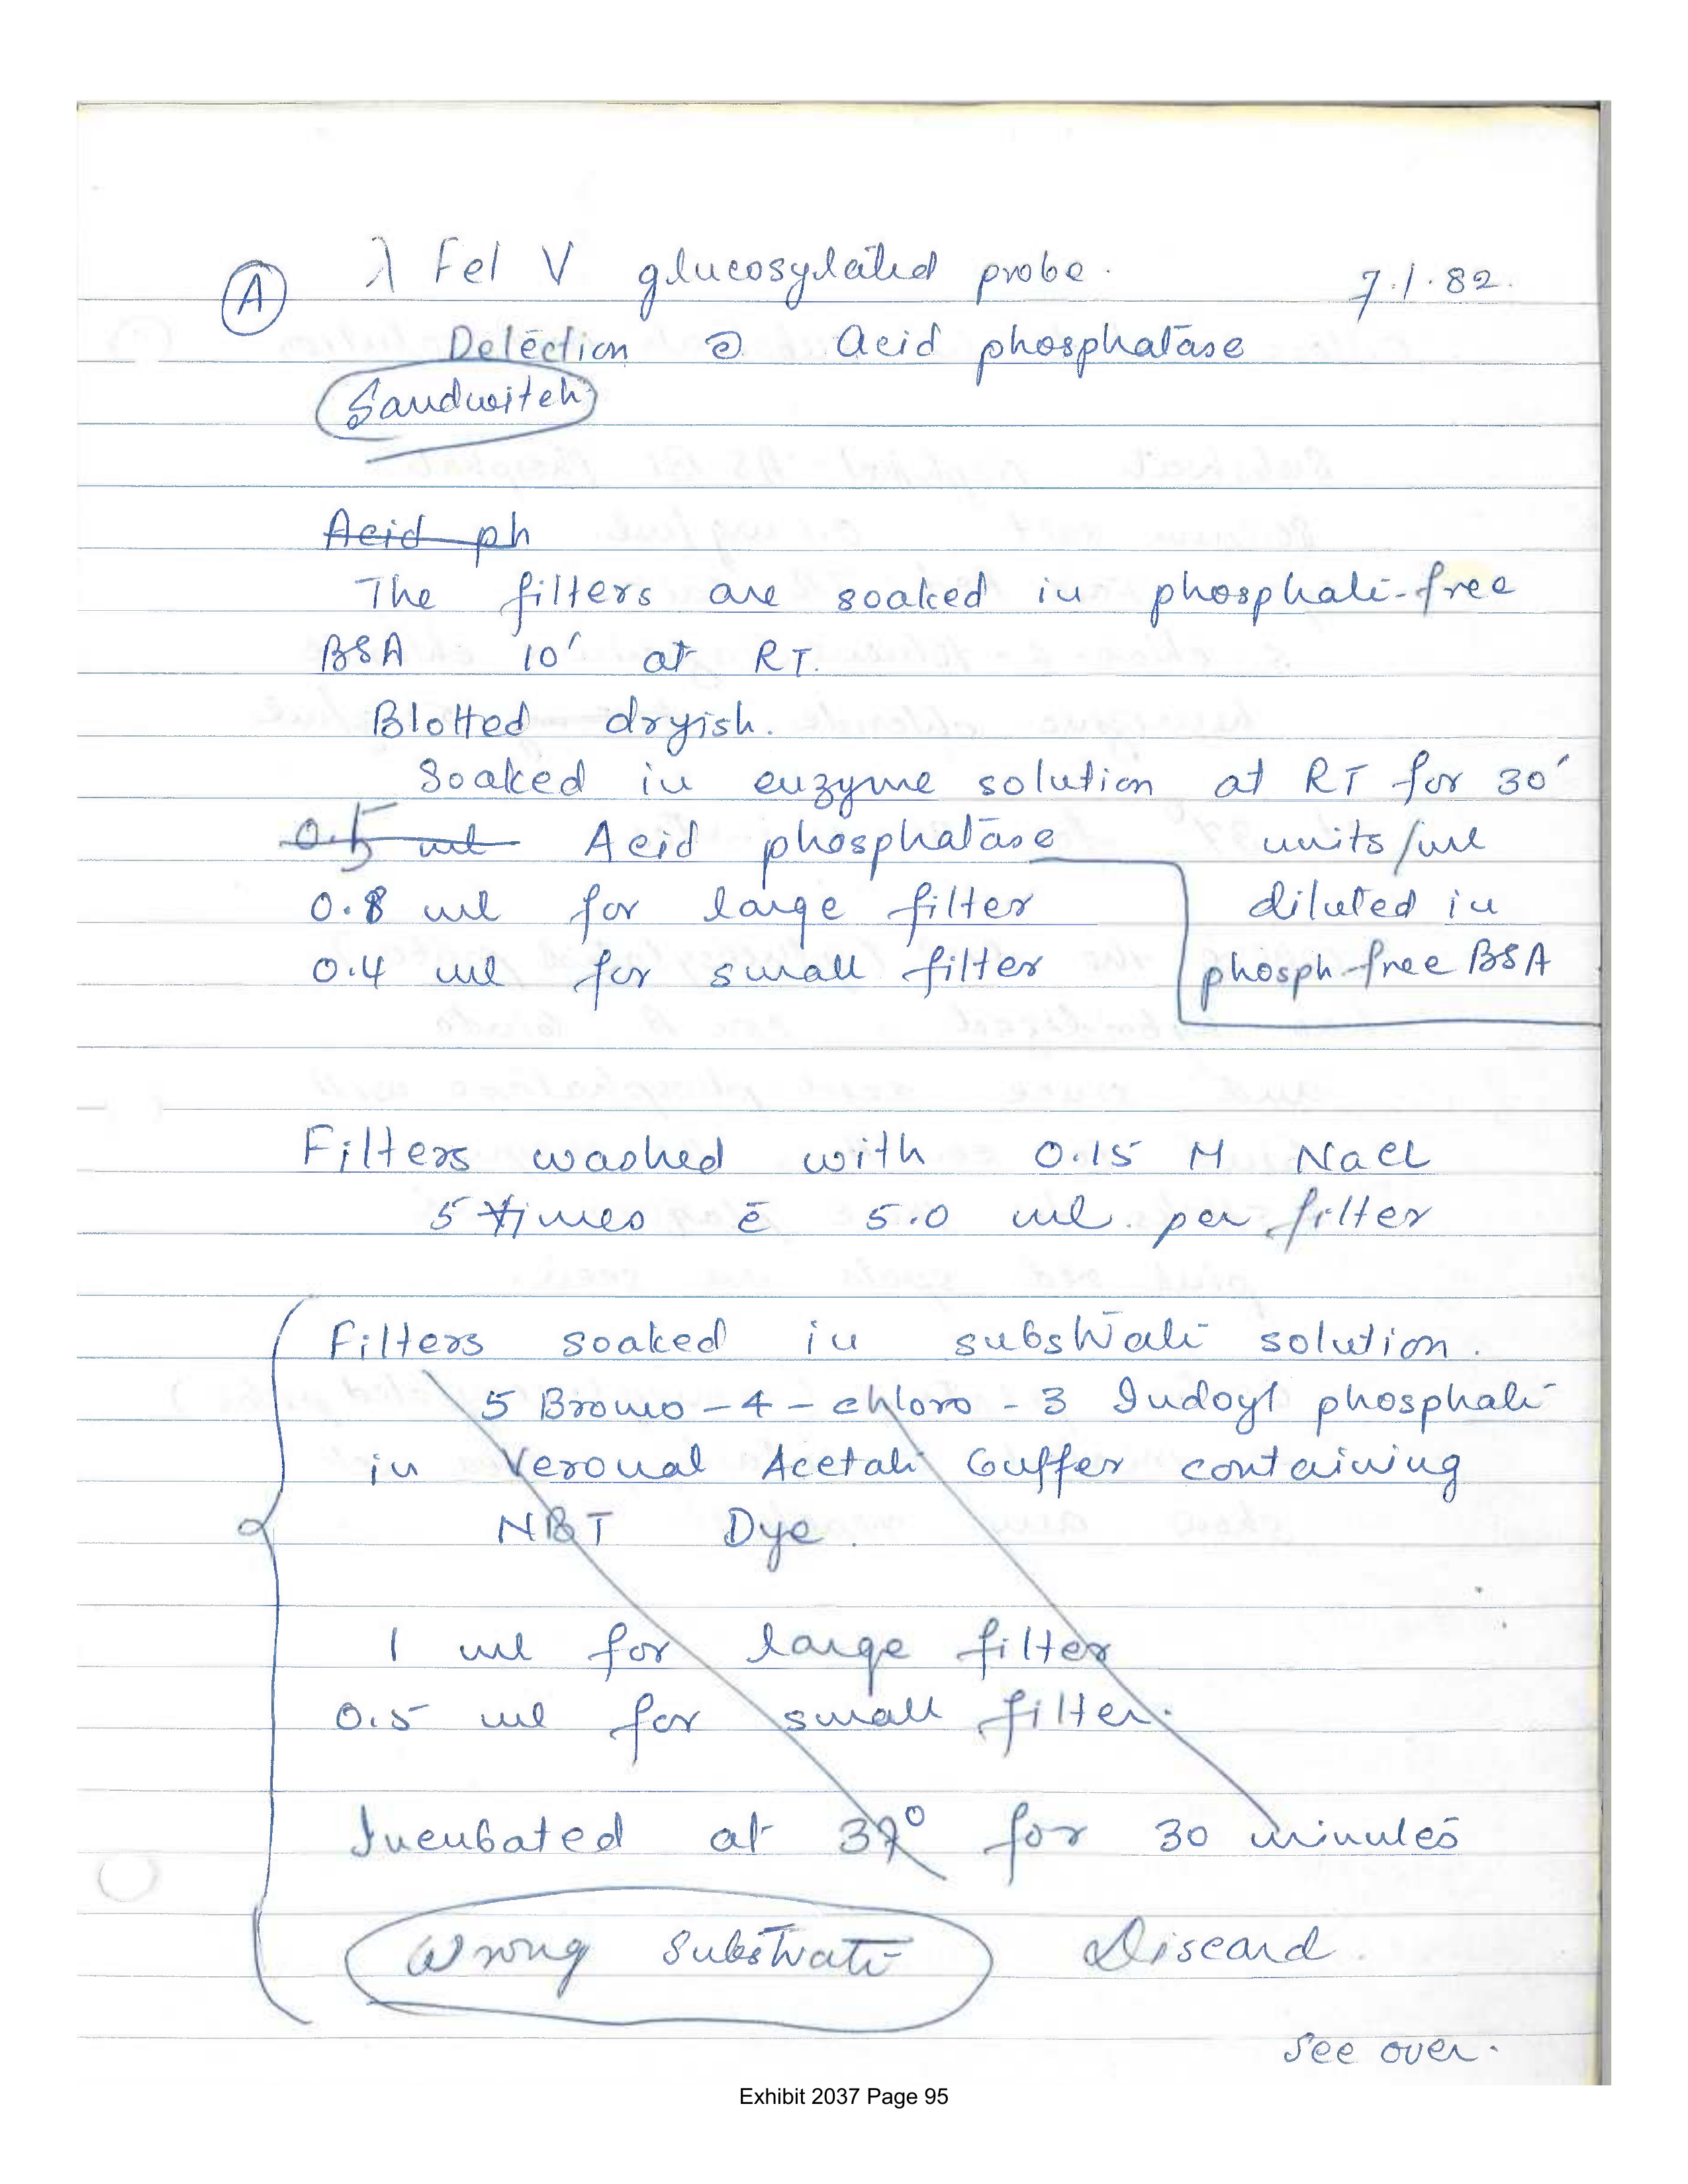 (A) λ Fel V glucosylated probe. 7.1.82.
Detection c̄ Acid phosphatase
Sandwitch
Acid ph
The filters are soaked in phosphate-free
BSA 10' at RT.
Blotted dryish.
Soaked in enzyme solution at RT for 30'
0.5 ml Acid phosphatase units/ml
0.8 ml for large filter diluted in
0.4 ml for small filter phosph-free BSA
Filters washed with 0.15 M NaCl
5 times c̄ 5.0 ml per filter
Filters soaked in substrate solution.
5 Bromo-4-chloro-3 Indoyl phosphate
in Veronal Acetate buffer containing
NBT Dye.
1 ml for large filter
0.5 ml for small filter.
Incubated at 37° for 30 minutes
Wrong Substrate Discard.
See over.
Exhibit 2037 Page 95